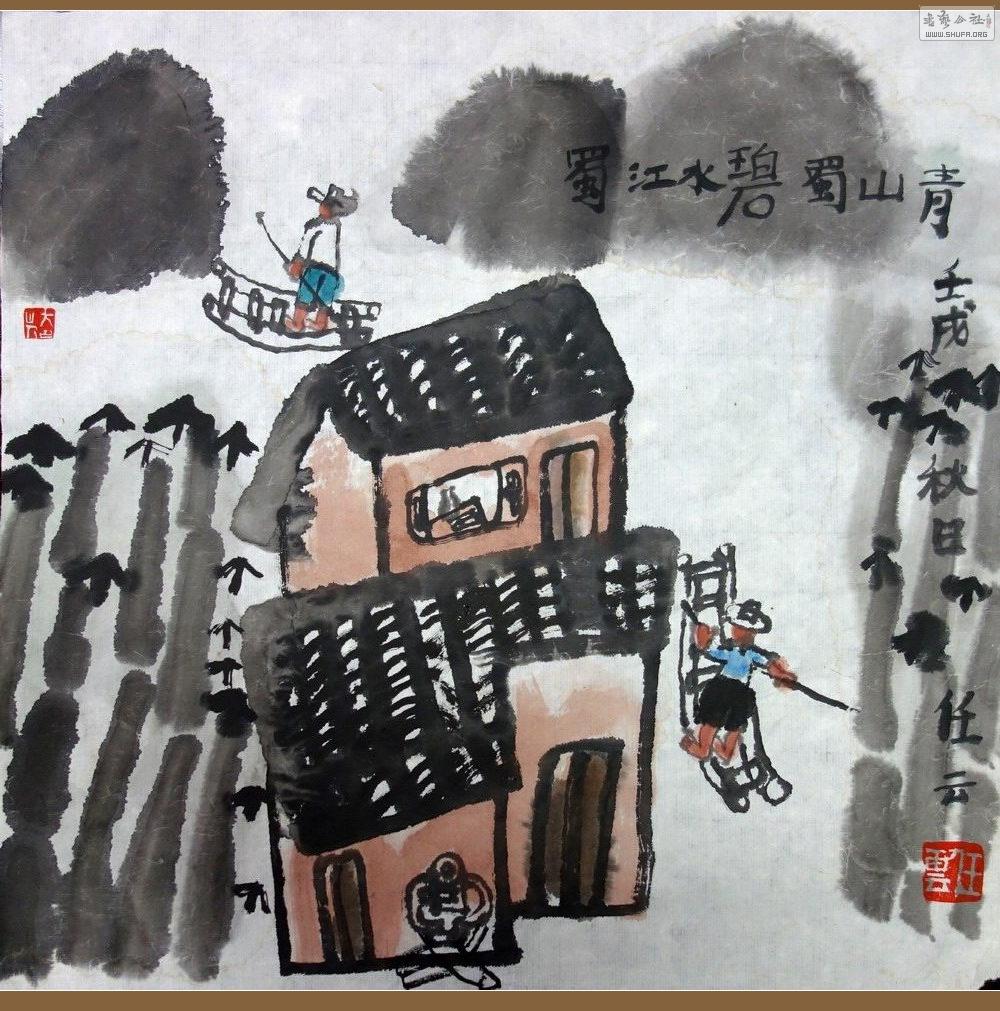 蜀江水碧蜀山青
壬戌秋日任云
任雲
书艺公社
WWW.SHUFA.ORG